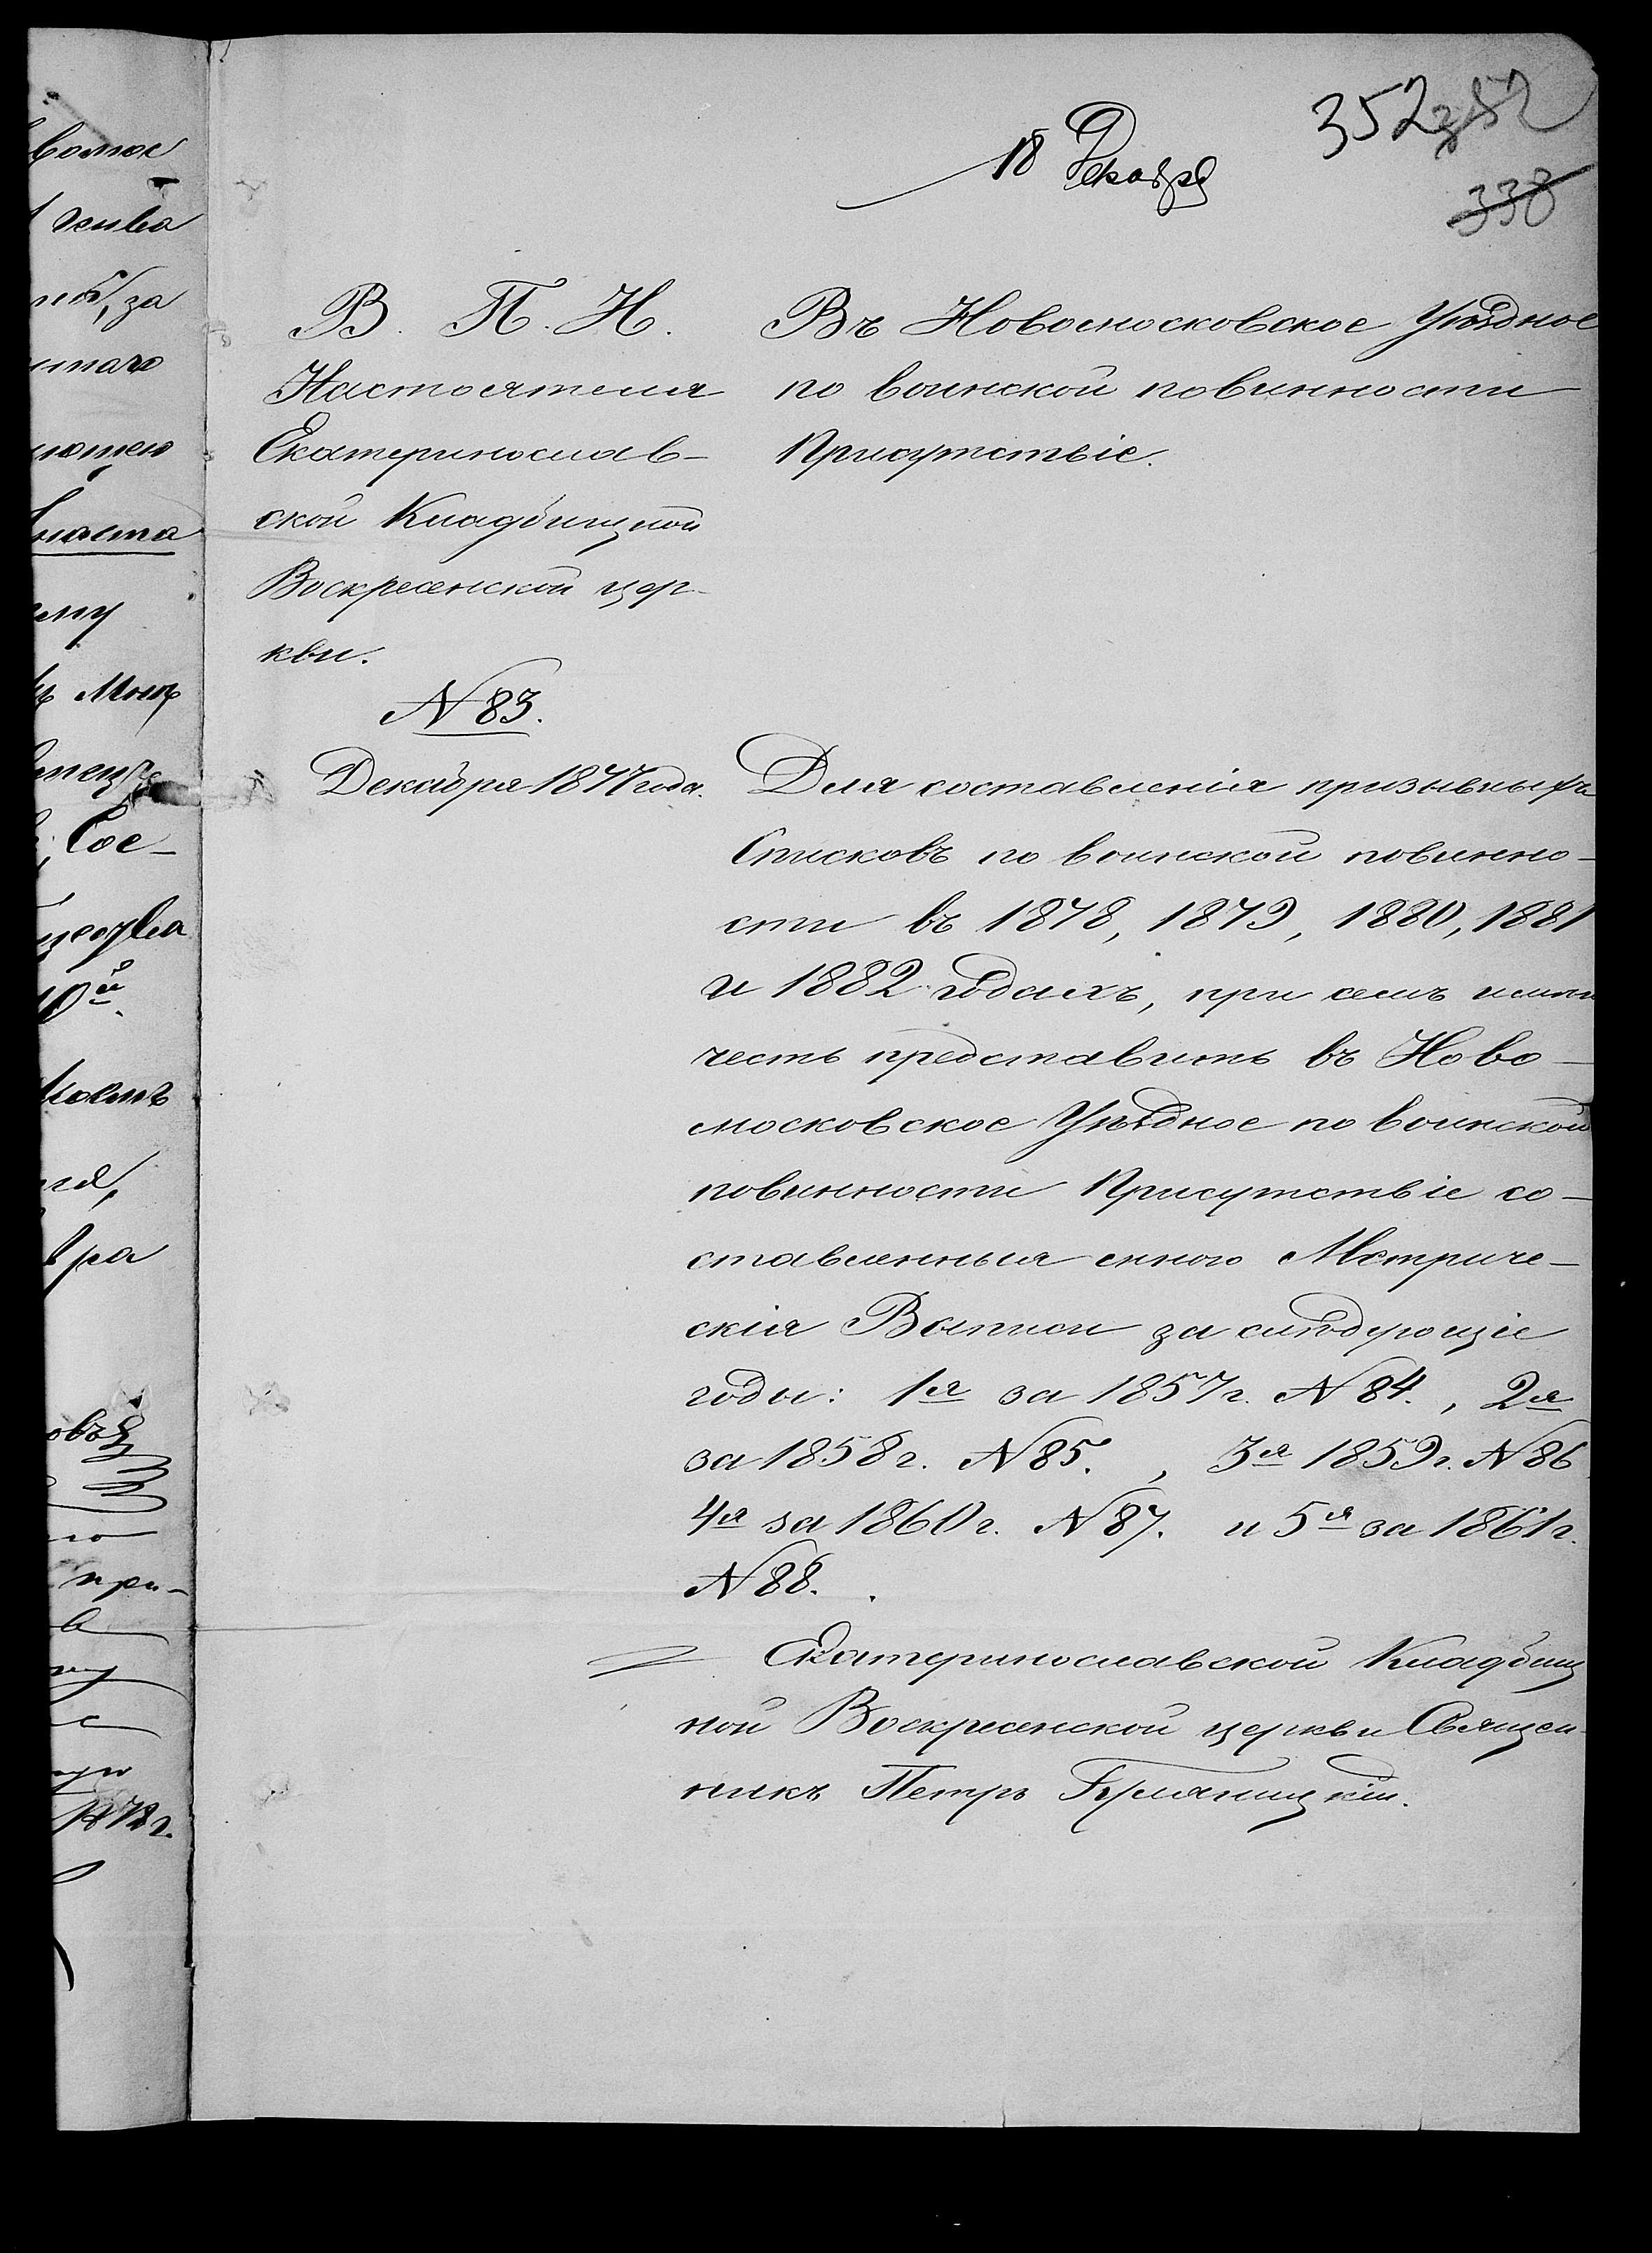 352 352
18 Декабря
338
В. П. Н.
Настоятеля
Екатеринослав-
ской Кладбищной
Воскресенской цер-
кви.
N 83.
Декабря 1877 года.
Въ Новомосковское Уѣздное
по воинской повинности
Присутствіе.
Для составленія призывныхъ
Списковъ по воинской повинно-
сти въ 1878, 1879, 1880, 1881
и 1882 годахъ, при семъ имѣю
честь представить въ Ново-
московское Уѣздное по воинской
повинности Присутствіе со-
ставленныя мною Метриче-
скія Выписи за слѣдующіе
годы: 1я за 1857 г. N 84., 2я
за 1858 г. N 85., 3я 1859 г. N 86
4я за 1860 г. N 87. и 5я за 1861 г.
N 88.
Екатеринославской Кладбищ
ной Воскресенской церкви Священ-
никъ Петръ